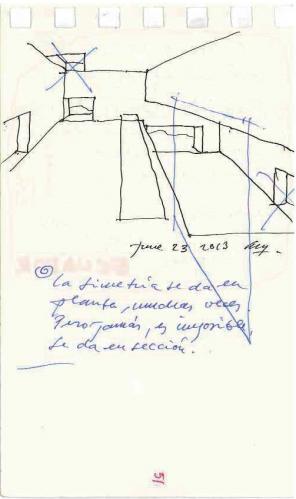 June 23 2013
6
La simetría se da en
planta, muchas veces
Pero jamás, es imposible,
se da en sección.
51